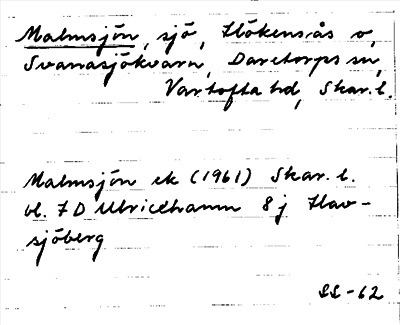 Malmsjön, sjö, Hökensås o,
Svanasjökvarn, Daretorps sn,
Vartofta hd, Skar. l.
Malmsjön ek (1961) Skar. l.
bl. 7 D Ulricehamn 8 j Hav-
sjöberg
SS-62